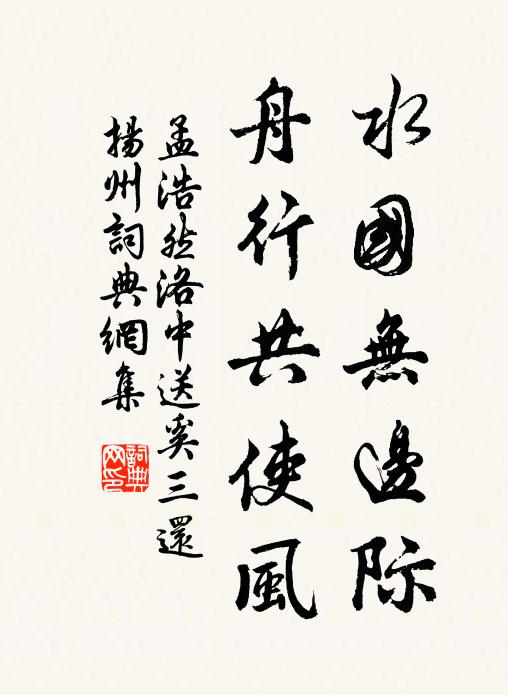 水國無邊際
舟行共使風
孟浩然洛中送奚三還
揚州詞典網集
詞典网印